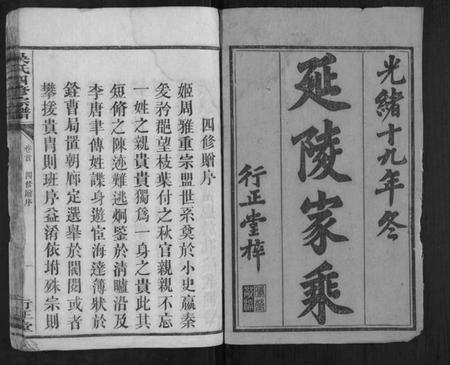 光緒十九年冬
延陵家乘
行正堂梓
四修贈序
姬周雅重宗盟世系奠於小史嬴秦
爰矜郡望枝葉付之秋官親親不忘
一姓之親貴貴獨爲一身之貴此其
短脩之陳迹難逃炯鑒於清矑沿及
李唐聿傳姓譜身遊宦海達簿狀於
銓曹局置朝廊定選舉於閥閱或者
攀援貴胄則班序益淆依坿殊宗則
吳氏四修宗譜
卷首 四修贈序
行正堂